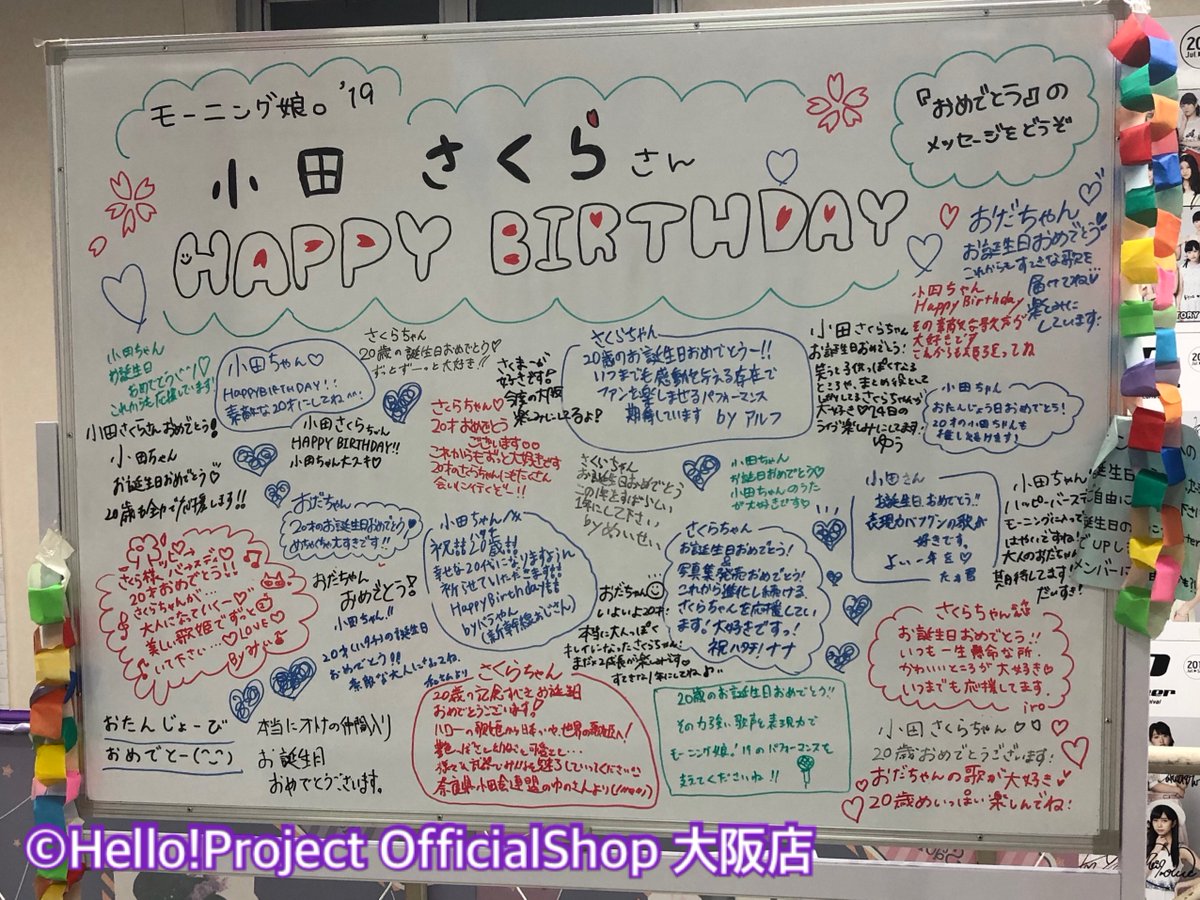 モーニング娘。'19
小田 さくら さん
HAPPY BIRTHDAY
『おめでとう』の
メッセージをどうぞ
おだちゃん
お誕生日おめでとう
これからもすてきな歌を
届けてね
楽しみに
しています!
小田ちゃん
Happy Birthday
その素敵な歌声が
大好きです
小田ちゃん
お誕生日
おめでとう
これからも応援してます!
小田ちゃん♡
HAPPY BIRTHDAY!!
素敵な20才にしてね
さくらちゃん
20歳の誕生日おめでとう!!
ずっとずーっと大好き!!
好きです!
今度の大阪
楽しみにしてるよ!
さくらちゃん
20歳のお誕生日おめでとうー!!
いつまでも感動を与える存在で
ファンを楽しませるパフォーマンス
期待しています by アルフ
小田さくらちゃん
お誕生日おめでとう!
笑うと子供っぽくなる
ところや、まとめ役として
しっかりしてるさくらちゃんが
大好き♡14日の
ライブ楽しみにしてます!
ゆう
小田ちゃん
おたんじょう日おめでとう!
20才の小田ちゃんも
推しつづけます!
小田さくらさんおめでとう!
小田さくらちゃん
HAPPY BIRTHDAY!!
小田ちゃん大スキ♡
さくらちゃん♡
20才おめでとう
ございます♡♡
これからもずっと大好きです
20才のさくらちゃんにもたくさん
会いにイクぞー!!
小田ちゃん
お誕生日おめでとう♡
20歳も全力で応援しまる!!
さくらちゃん
お誕生日おめでとう
この1年をすばらしい
1年にして下さい
by めいせい
小田ちゃん
お誕生日おめでとう♡
小田ちゃんのうた
が大好きです♡
小田さん
お誕生日おめでとう!!
表現力バツグンの歌が
好きです。
よい一年を♡
小田ちゃん
ハッピーバースデー
モーニングに入って
はやいですね!
大人のおだちゃん
期待してます!
だいすき!
おだちゃん
20才のお誕生日おめでとう
めちゃくちゃ大すきです!!
小田ちゃん
祝詰20歳!!
幸せな20代になりますように
祈らせていただきます!!
Happy Birthday!!
by バラやん
(新幹線おじさん)
さくらちゃん
お誕生日おめでとう!
&
写真集発売おめでとう!
これから進化し続ける
さくらちゃんを応援してい
ます!大好きですっ!
祝ハタチ!ナナ
さくら様、バースデー♡
20才おめでとう!!
さくらちゃんが…
大人になっていくー♡
美しい歌姫でずっと
いて下さい…♡LOVE♡
By みぃ
おだちゃん
おめでとう!
小田ちゃん!!
20才(ハタチ)の誕生日
おめでとう!!
素敵な大人になってね。
おだちゃん
いよいよ20才!
本当に大人っぽく
キレイになったさくらちゃん!
まだ×2成長が楽しみです♡
すてきな1年にしてね♪
さくらちゃん
お誕生日おめでとう!!
いつも一生懸命な所、
かわいいところが大好き♡
いつまでも応援してます。
iro
さくらちゃん
20歳の記念すべきお誕生日
おめでとうございます!
ハローの歌姫から日本いや、世界の歌姫へ!
奈良県小田会連盟のゆのさんより
20歳のお誕生日おめでとう!!
その力強い歌声と表現力で
モーニング娘。'19のパフォーマンスを
支えてくださいね!!
小田さくらちゃん♡♡
20歳おめでとうございます!
おだちゃんの歌が大好き
20歳めいっぱい楽しんでね!
おたんじょーび
おめでとー(^^)
本当にオトナの仲間入り
お誕生日
おめでとうございます。
©Hello!Project OfficialShop 大阪店